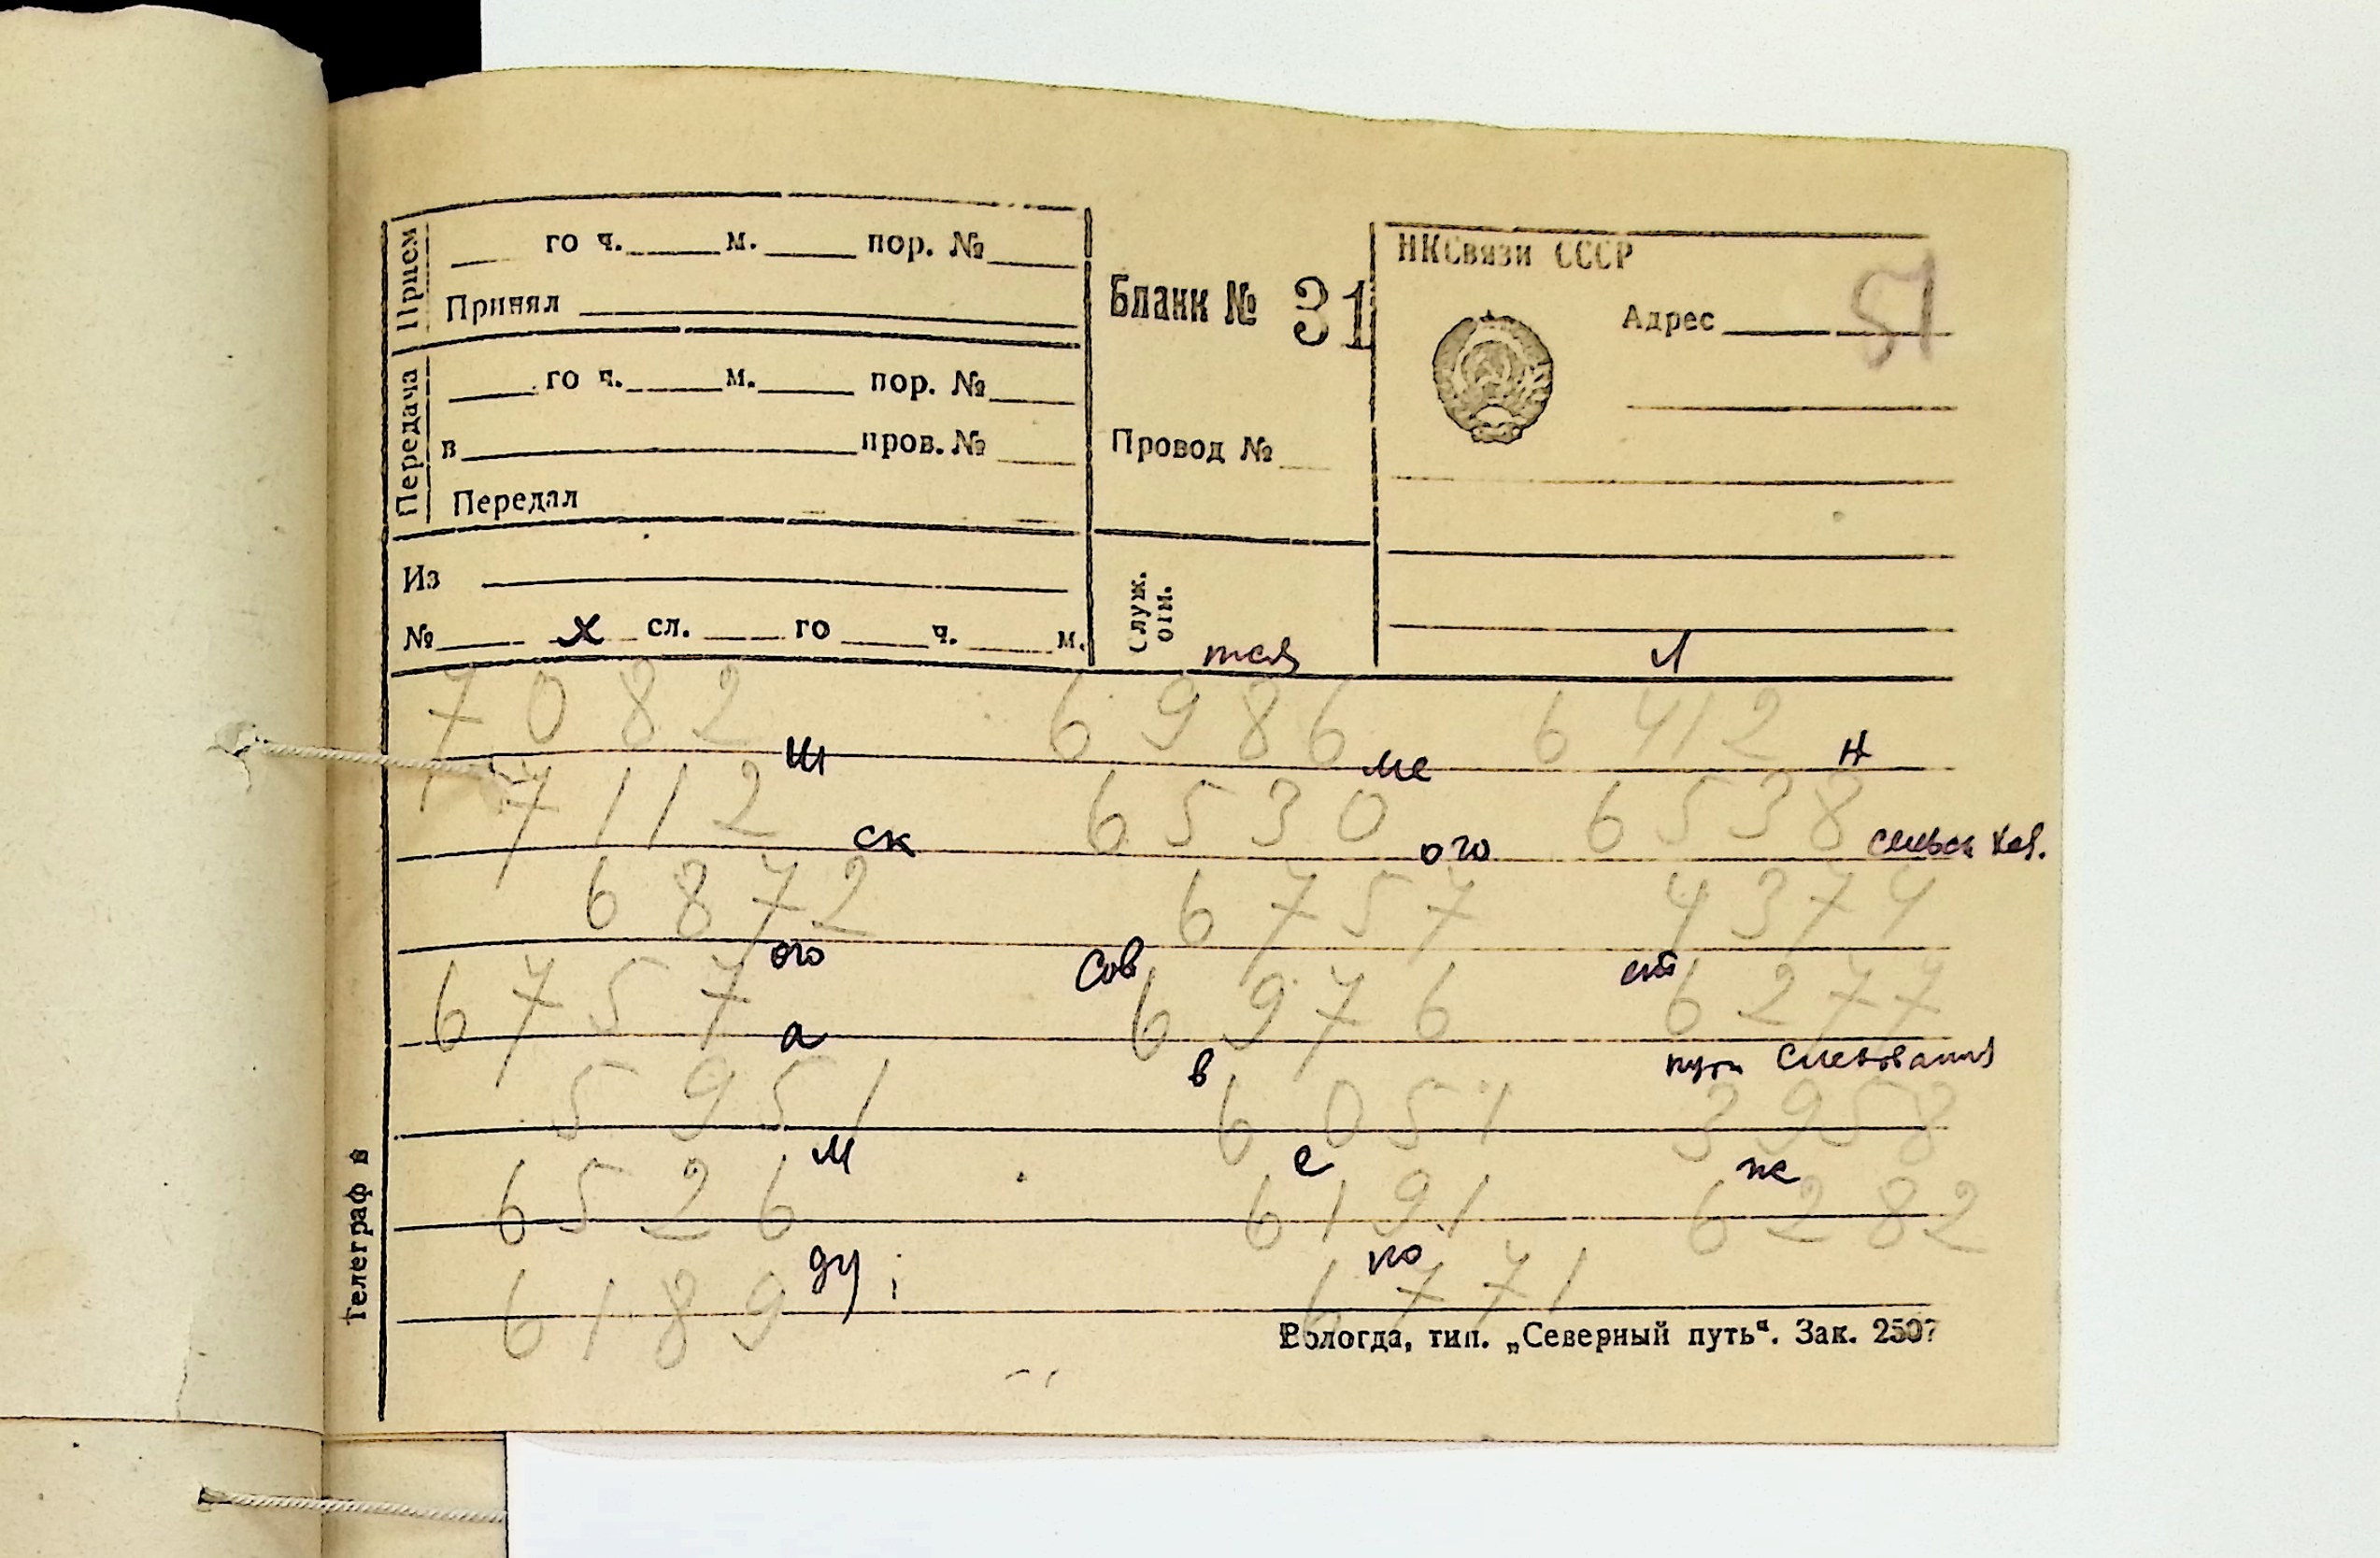 го ч. м. пор. №
Принял
Прием
го ч. м. пор. №
в пров. №
Передал
Передача
Из
№ х сл. го ч. м.
Бланк № 31
Провод №
Служ. отм.
НКСвязи СССР
Адрес 51
теля л
7082 6986 6412
ш ме н
7112 6530 6538
ск ого сельск
6872 6757 4374
ого сов ета
6757 6976 6277
а в пути следования
5951 6051 3958
м е ж
6526 6191 6282
ду; по
6189 6771
Телеграф в
Вологда, тип. „Северный путь“. Зак. 2507